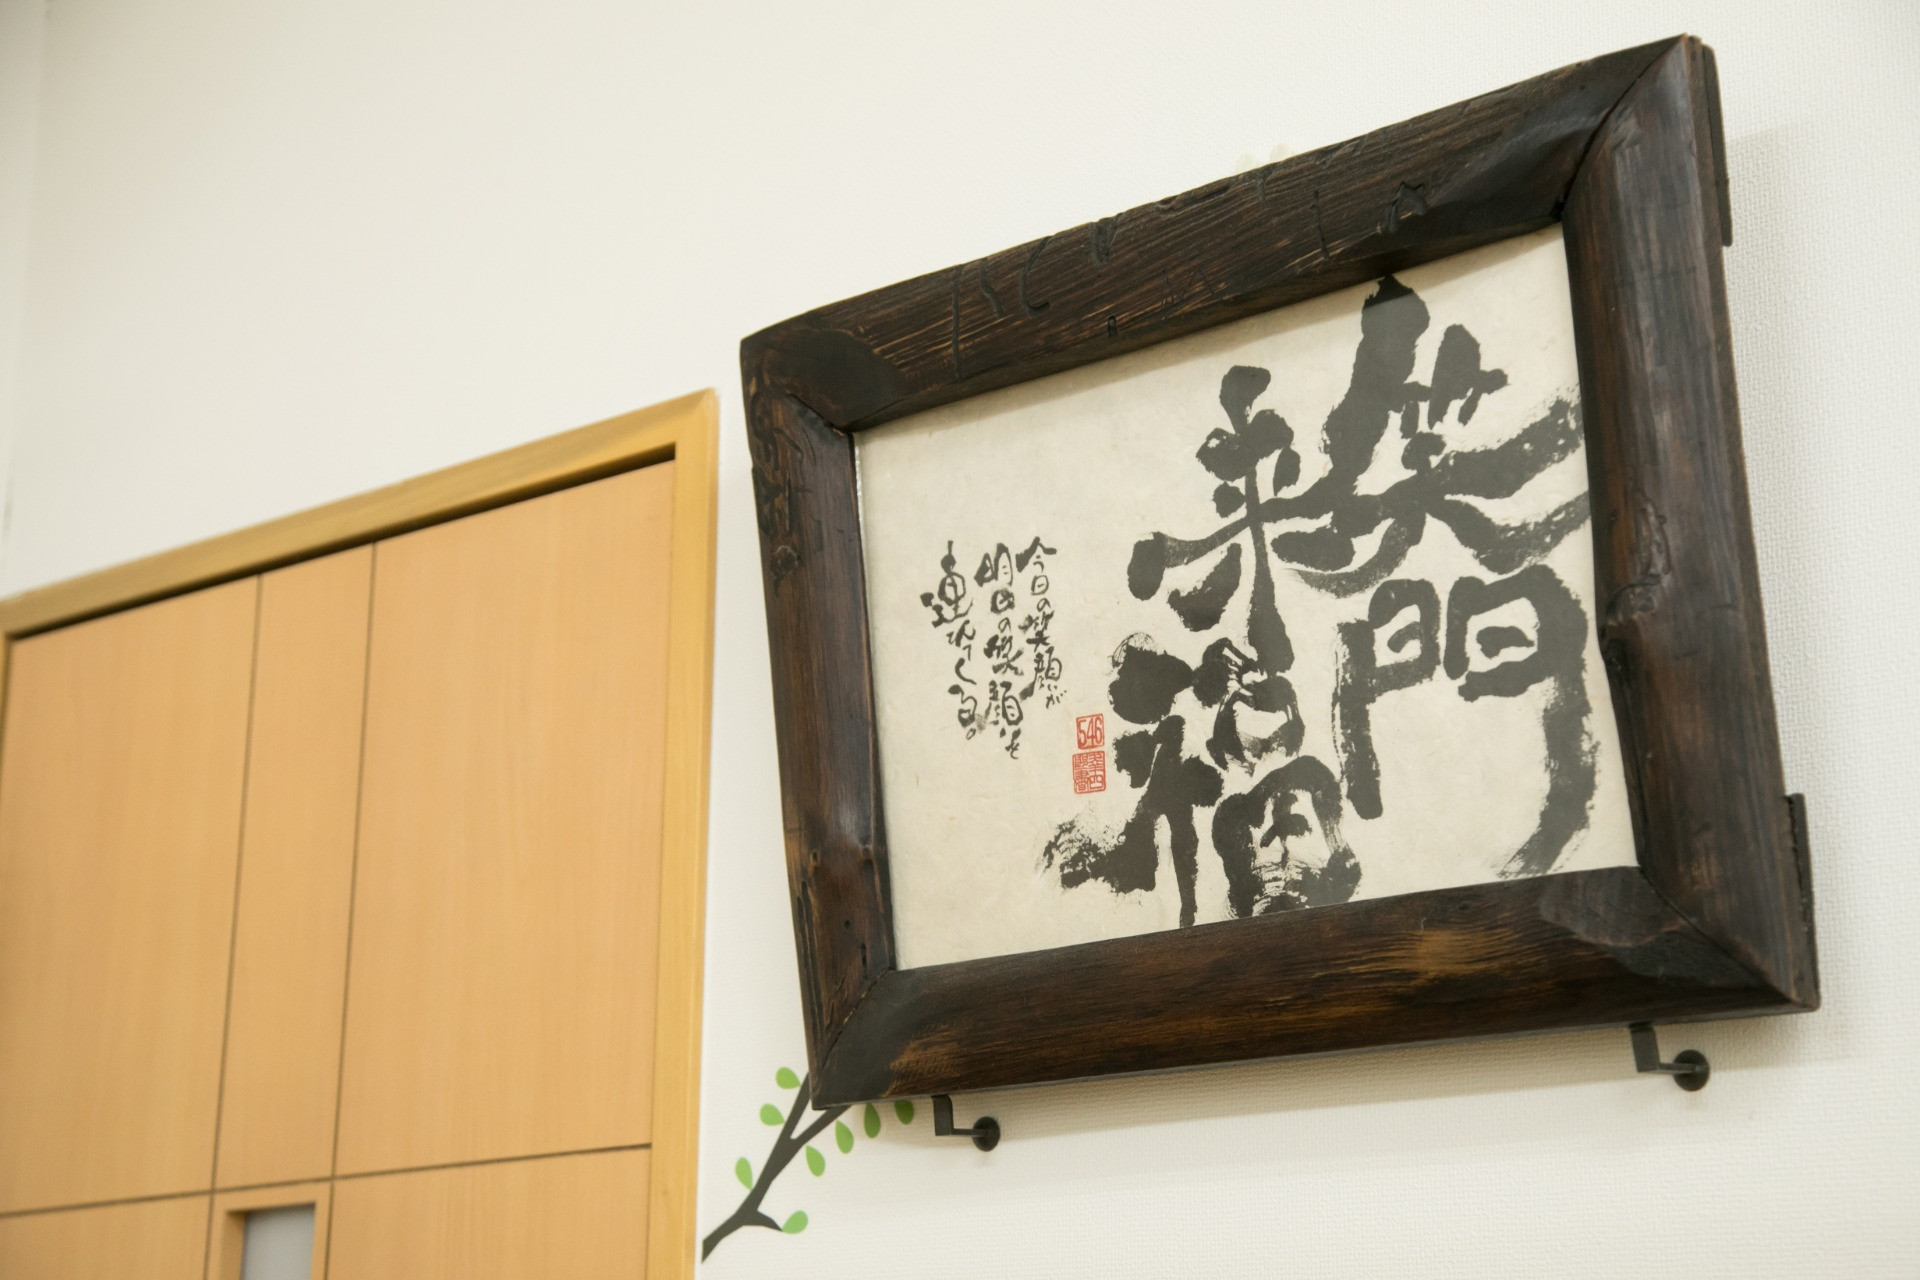 笑門
来福
今日の笑顔が
明日の笑顔を
連れてくる。
546